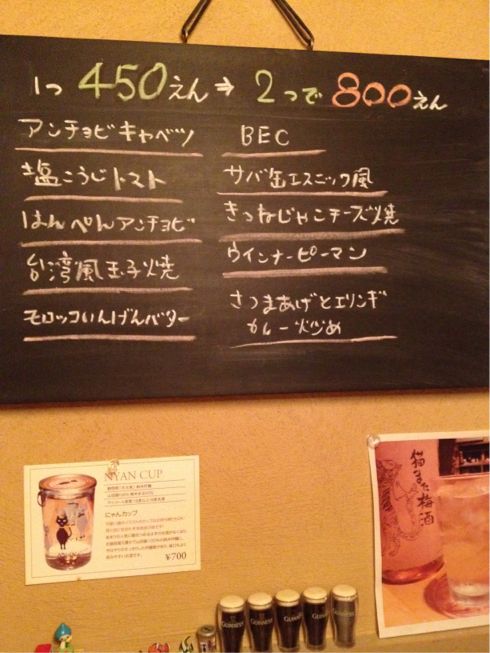 1つ 450えん → 2つで 800えん
アンチョビキャベツ
塩こうじトマト
はんぺんアンチョビ
台湾風玉子焼
モロッコいんげんバター
BEC
サバ缶エスニック風
きつねじゃこチーズ焼
ウインナーピーマン
さつまあげとエリンギ
カレー炒め
NYAN CUP
にゃんカップ
¥700
猫また梅酒
GUINNESS
GUINNESS
GUINNESS
GUINNESS
GUINNESS